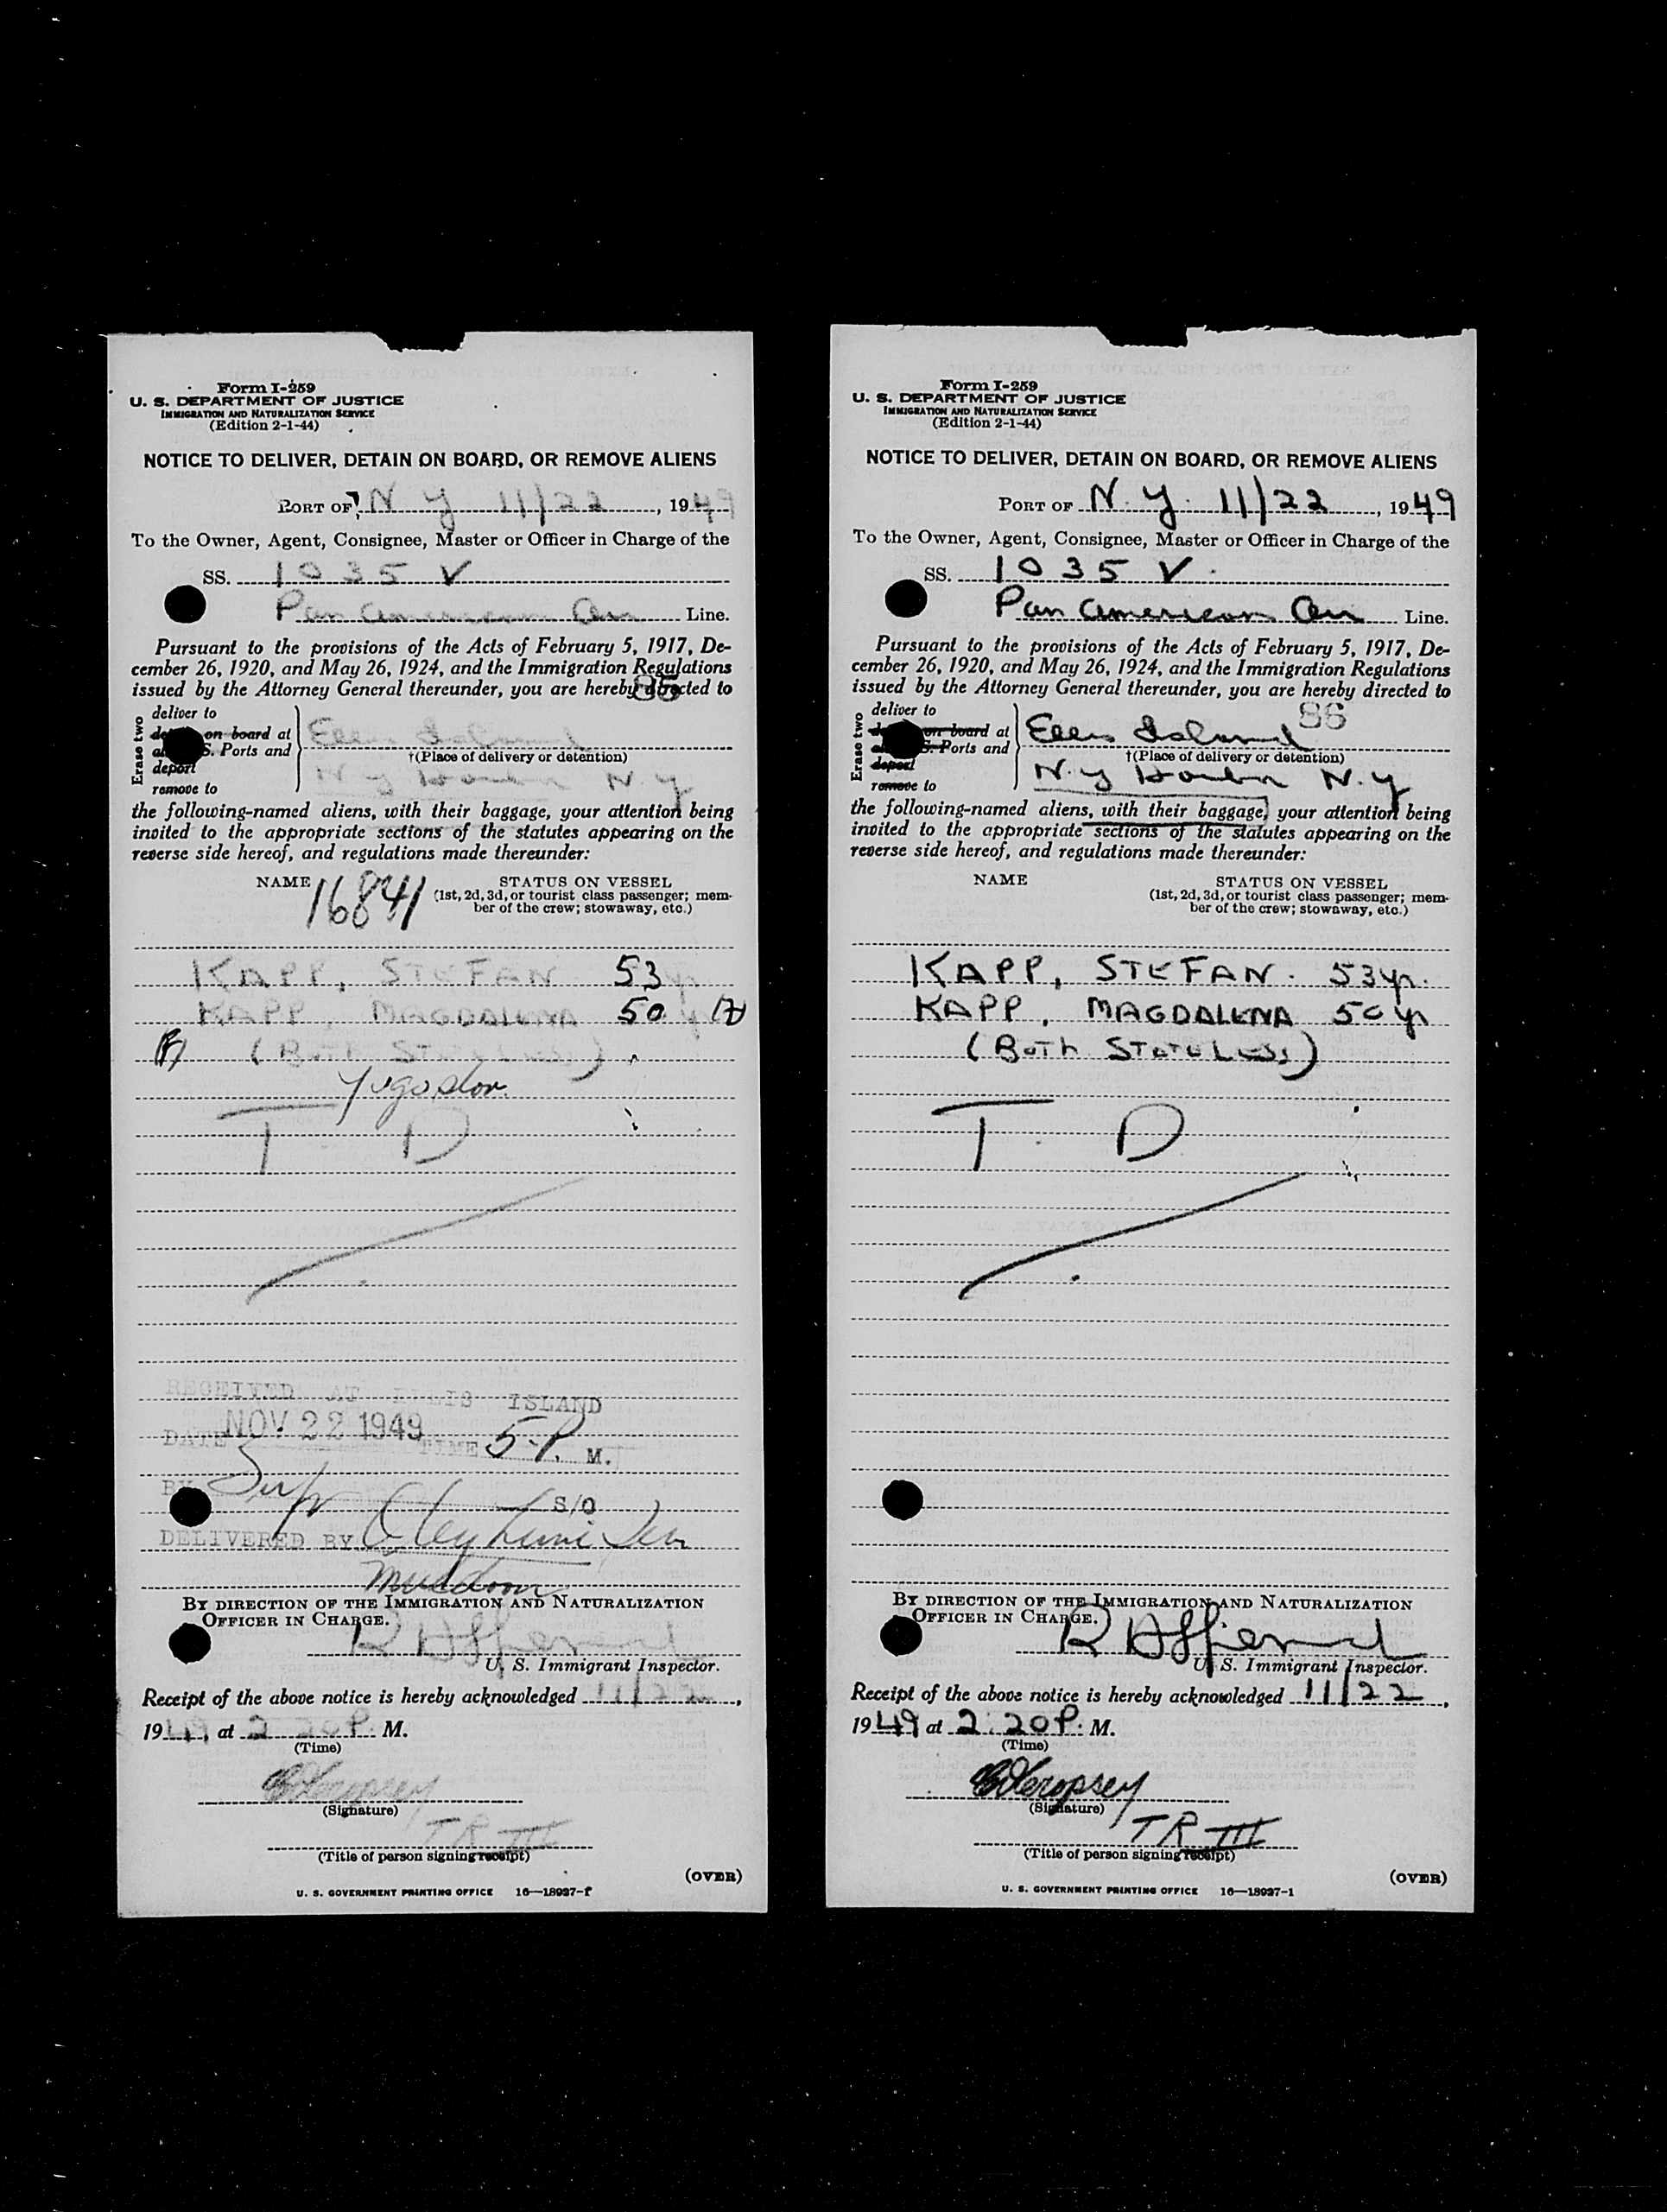 Form I-259
U. S. DEPARTMENT OF JUSTICE
IMMIGRATION AND NATURALIZATION SERVICE
(Edition 2-1-44)
NOTICE TO DELIVER, DETAIN ON BOARD, OR REMOVE ALIENS
PORT OF N Y 11/22, 1949
To the Owner, Agent, Consignee, Master or Officer in Charge of the
SS. 1035 V
Pan American Air Line.
Pursuant to the provisions of the Acts of February 5, 1917, De-
cember 26, 1920, and May 26, 1924, and the Immigration Regulations
issued by the Attorney General thereunder, you are hereby directed to
85
Erase two
deliver to
on board at
S. Ports and
deport
remove to
Ellis Island
†(Place of delivery or detention)
N Y Harbor N. Y
the following-named aliens, with their baggage, your attention being
invited to the appropriate sections of the statutes appearing on the
reverse side hereof, and regulations made thereunder:
NAME
16841
STATUS ON VESSEL
(1st, 2d, 3d, or tourist class passenger; mem-
ber of the crew; stowaway, etc.)
KAPP, STEFAN 53 yr
KAPP, MAGDALENA 50 yr
(Both Stateless)
Yugoslav.
T D
RECEIVED AT ELLIS ISLAND
DATE NOV 22 1949 TIME 5 P. M.
BY
S/O
DELIVERED BY
BY DIRECTION OF THE IMMIGRATION AND NATURALIZATION
OFFICER IN CHARGE.
U. S. Immigrant Inspector.
Receipt of the above notice is hereby acknowledged 11/22,
1949, at 2 20 P. M.
(Time)
(Signature)
TR III
(Title of person signing receipt)
(OVER)
U. S. GOVERNMENT PRINTING OFFICE 16—18927-1
Form I-259
U. S. DEPARTMENT OF JUSTICE
IMMIGRATION AND NATURALIZATION SERVICE
(Edition 2-1-44)
NOTICE TO DELIVER, DETAIN ON BOARD, OR REMOVE ALIENS
PORT OF N. Y. 11/22, 1949
To the Owner, Agent, Consignee, Master or Officer in Charge of the
SS. 1035 V.
Pan American Air Line.
Pursuant to the provisions of the Acts of February 5, 1917, De-
cember 26, 1920, and May 26, 1924, and the Immigration Regulations
issued by the Attorney General thereunder, you are hereby directed to
86
Erase two
deliver to
on board at
S. Ports and
deport
remove to
Ellis Island
†(Place of delivery or detention)
N. Y Harbor N. Y
the following-named aliens, with their baggage, your attention being
invited to the appropriate sections of the statutes appearing on the
reverse side hereof, and regulations made thereunder:
NAME
STATUS ON VESSEL
(1st, 2d, 3d, or tourist class passenger; mem-
ber of the crew; stowaway, etc.)
KAPP, STEFAN. 53 yr.
KAPP, MAGDALENA 50 yr
(Both Stateless)
T. D
BY DIRECTION OF THE IMMIGRATION AND NATURALIZATION
OFFICER IN CHARGE.
U. S. Immigrant Inspector.
Receipt of the above notice is hereby acknowledged 11/22,
1949 at 2:20 P. M.
(Time)
(Signature)
TR III
(Title of person signing receipt)
(OVER)
U. S. GOVERNMENT PRINTING OFFICE 16—18927-1